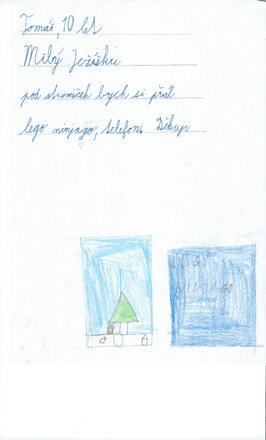 Tomáš, 10 let
Milý Ježíšku
pod stromeček bych si přál
lego ninjago, telefon. Děkuji